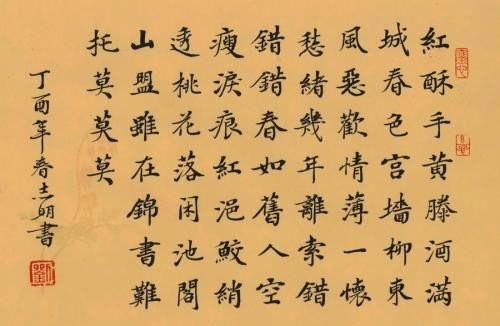 紅酥手黄滕酒滿
城春色宫墻柳東
風惡歡情薄一懷
愁緒幾年離索錯
錯錯春如舊人空
瘦淚痕紅浥鮫綃
透桃花落閑池閣
山盟雖在錦書難
托莫莫莫
丁酉年春志明書
劉